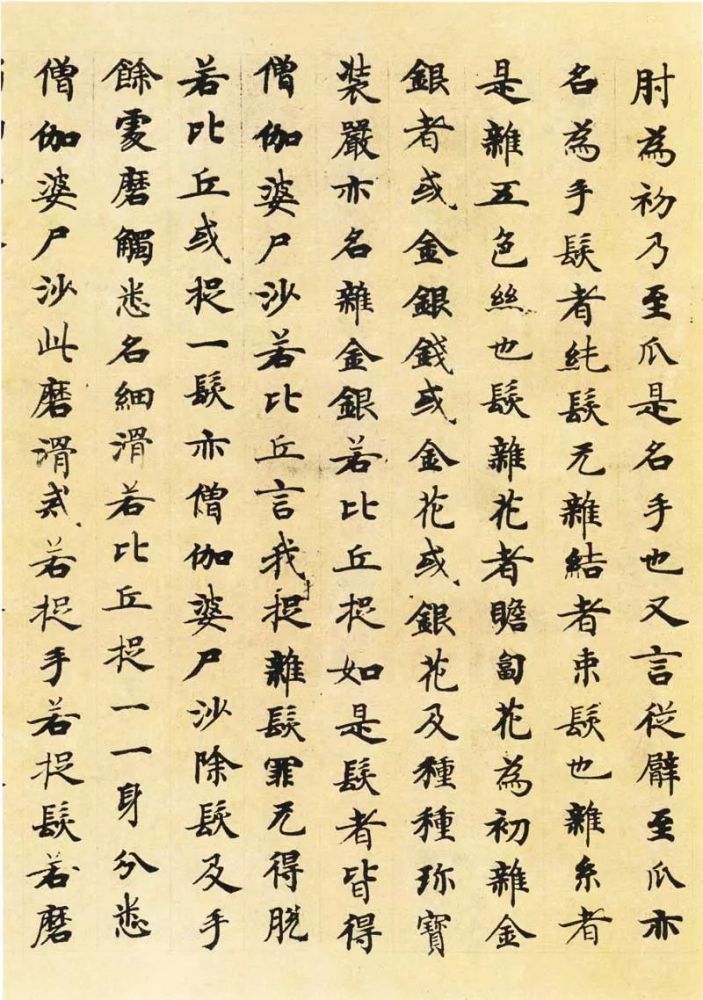 肘為初乃至爪是名手也又言従臂至爪亦
名為手髮者純髮无雜結者束髮也雜糸者
是雜五色絲也髮雜花者瞻蔔花為初雜金
銀者或金銀錢或金花或銀花及種種珎寶
装嚴亦名雜金銀若比丘捉如是髮者皆得
僧伽婆尸沙若比丘言我捉雜髮罪无得脫
若比丘或捉一髮亦僧伽婆尸沙除髮及手
餘䖏磨觸悉名細滑若比丘捉一一身分悉
僧伽婆尸沙此磨滑戒若捉手若捉髮若磨